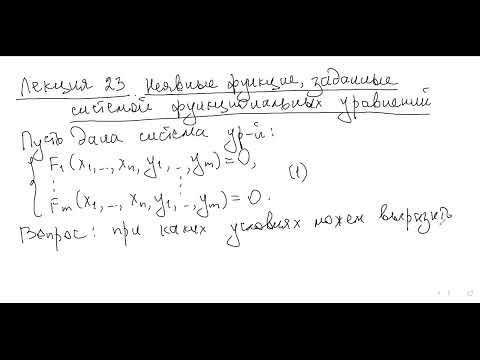 Лекция 23. Неявные функции, заданные
системой функциональных уравнений
Пусть дана система ур-й:
F₁(x₁,...,xₙ,y₁,...,yₘ)=0,
⋮ ⋮ (1)
Fₘ(x₁,...,xₙ,y₁,...,yₘ)=0.
Вопрос: при каких условиях можем выразить